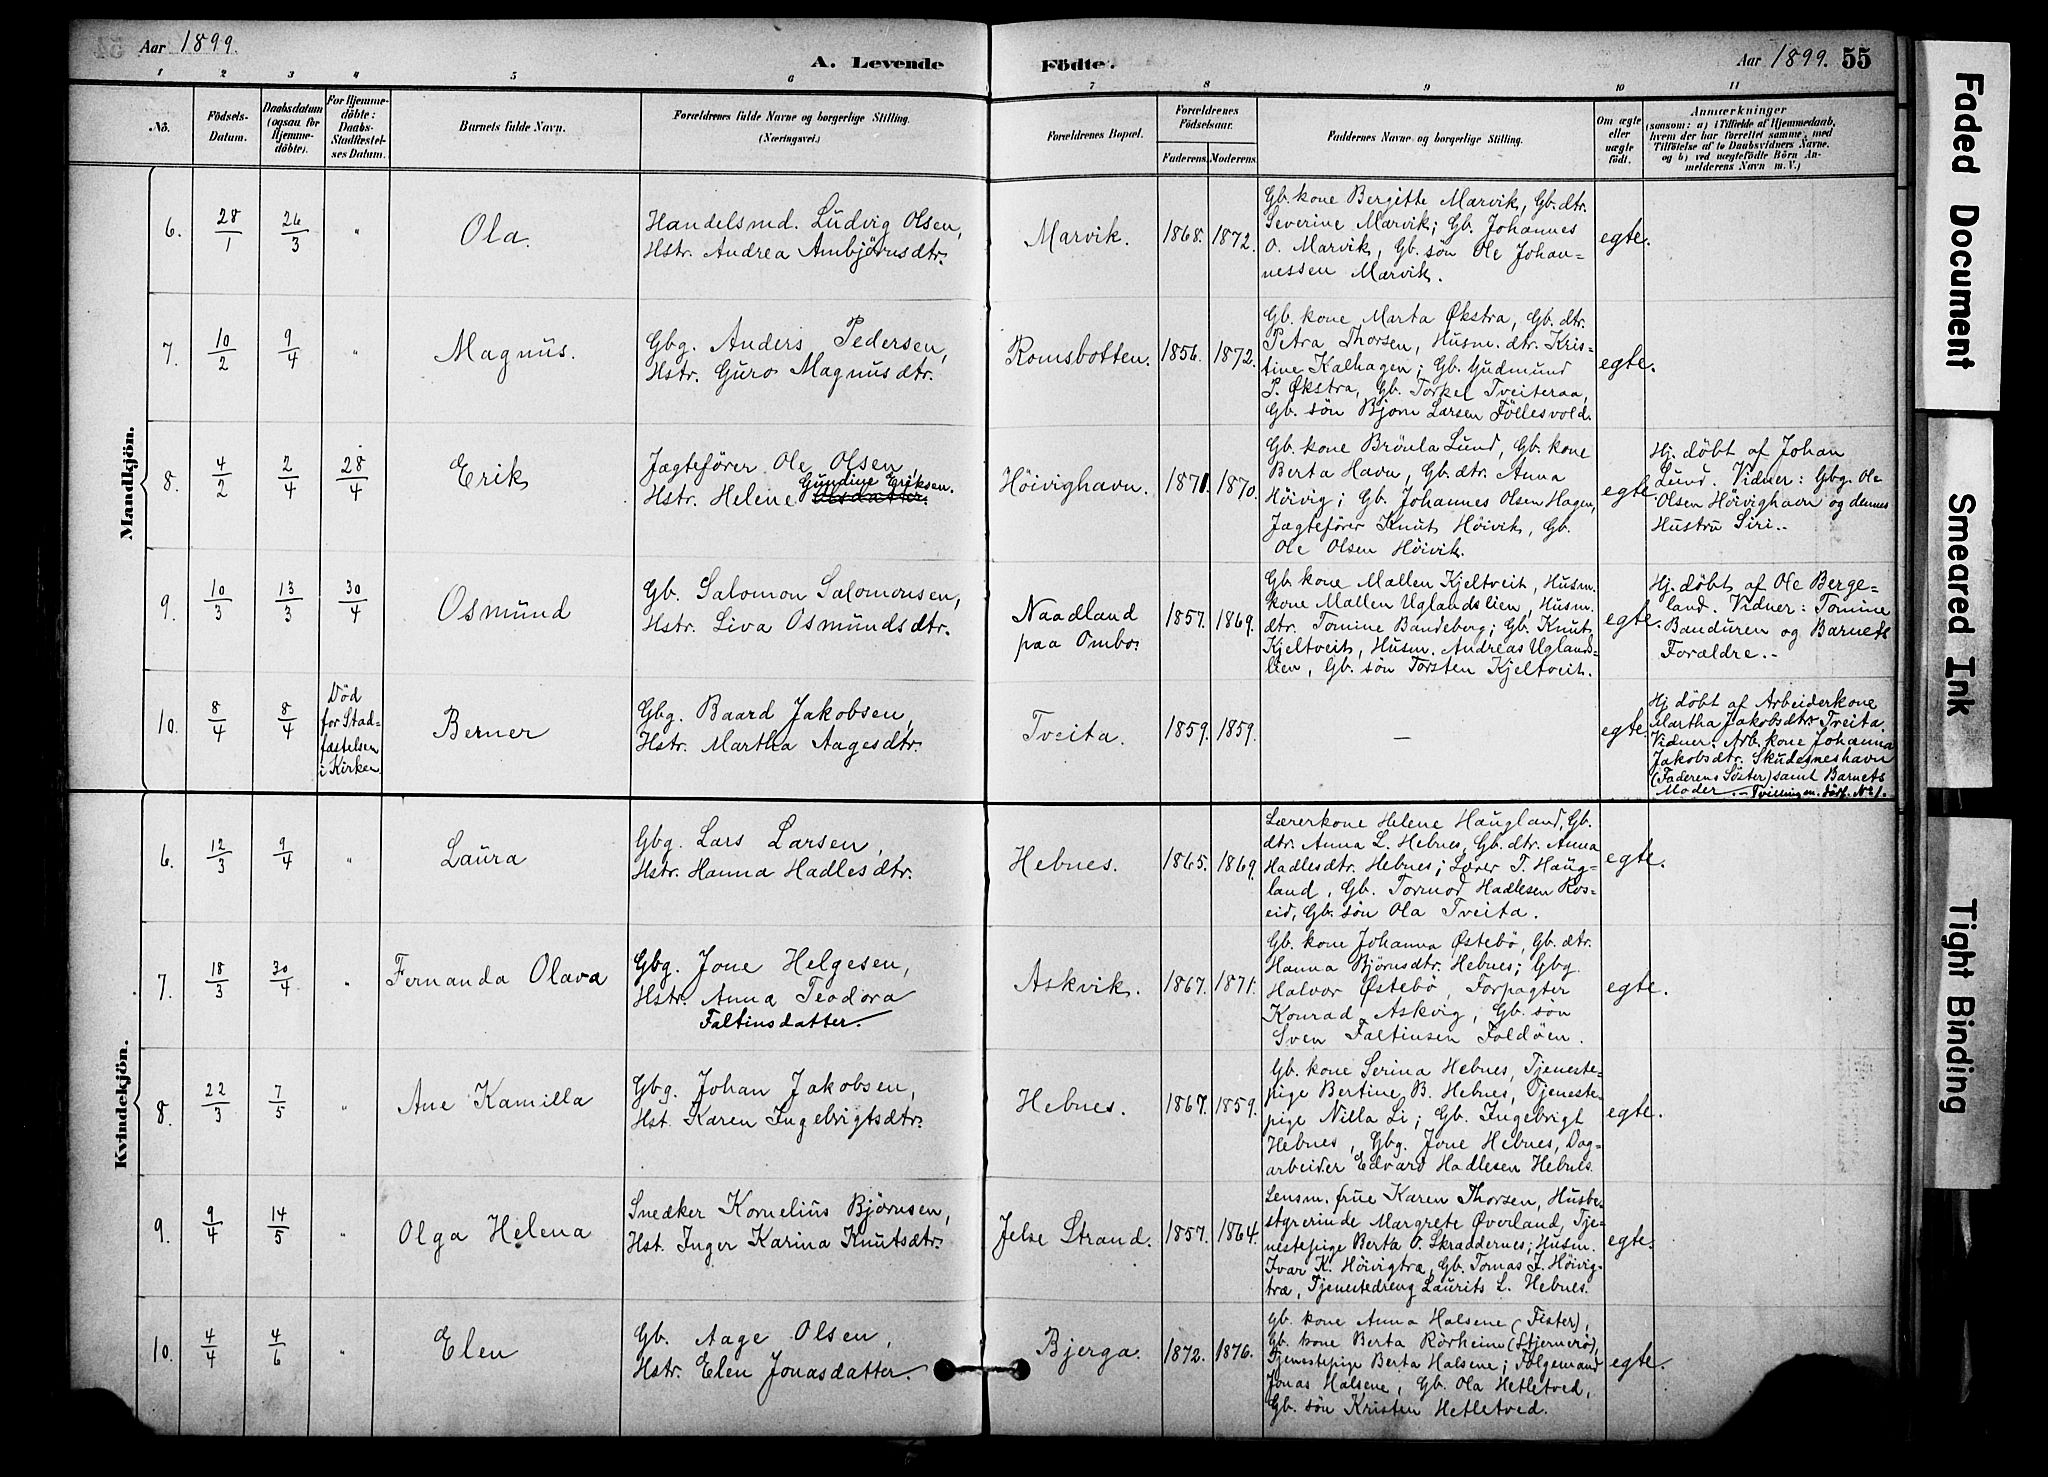 Aar 1899.
A. Levende Födte.
Aar 1899. 55
1 2 3 4 5 6 7 8 9 10 11
No.
Födsels-
Datum.
Daabsdatum
(ogsaa for
Hjemme-
döbte).
For Hjemme-
döbte:
Daabs-
Stadfæstel-
ses Datum.
Barnets fulde Navn.
Forældrenes fulde Navne og borgerlige Stilling.
(Næringsvei.)
Forældrenes Bopæl.
Forældrenes
Födselsaar.
Faderens. Moderens.
Faddernes Navne og borgerlige Stilling.
Om ægte
eller
uægte
födt.
Anmærkninger
(saasom: a) i Tilfælde af Hjemmedaab,
hvem der har forrettet samme, med
Tilföielse af to Daabsvidners Navne.
og b) ved uægtefödte Börn An-
melderens Navn m. V.)
Mandkjön.
6. 28/1 26/3 "
Ola.
Handelsmd. Ludvig Olsen,
Hstr. Andrea Ambjörnsdtr.
Marvik. 1868. 1872.
Gb. kone Bergitte Marvik, Gb. dtr.
Severine Marvik; Gb. Johannes
O. Marvik, Gb. sön Ole Johan-
nessen Marvik.
egte.
7. 10/2 9/4 "
Magnus.
Gbg. Anders Pedersen,
Hstr. Guro Magnusdtr.
Romsbotten. 1856. 1872.
Gb. kone Marta Økstra, Gb. dtr.
Petra Thorsen, Husm. dtr. Kris-
tine Kalhagen; Gb. Gudmund
P. Økstra, Gb. Torkel Tveiteraa,
Gb. sön Bjorn LarsenFöllesvold.
egte.
8. 4/2 2/4 28/4
Erik
Jægtefører Ole Olsen,
Gundine Eriksen.
Hstr. Helene Olsdatter.
Höivighavn. 1871. 1870.
Gb. kone Brönla Lund, Gb. kone
Berta Havn, Gb. dtr. Anna
Höivig; Gb. Johannes Olsen Hagen,
Jægteförer Knut Höivik, Gb.
Ole Olsen Höivik.
egte.
Hj. döbt af Johan
Lund. Vidner: Gbg. Ole
Olsen Höivighavn og dennes
Hustru Siri.
9. 10/3 13/3 30/4
Osmund
Gb. Salomon Salomonsen,
Hstr. Liva Osmundsdtr.
Naadland
paa Ombo. 1857. 1869.
Gb. kone Mallen Kjeltveit, Husm.
kone Mallen Uglandslien, Husm.
dtr. Tomine Bandeberg; Gb. Knut
Kjeltveit, Husm. Andreas Uglands-
lien, Gb. sön Torsten Kjeltveit.
egte.
Hj. döbt af Ole Berge-
land. Vidner: Tomine
Banduren og Barnets
Forældre.
10. 8/4 8/4
Död
for Stad-
fæstelsen
i Kirken
Berner
Gbg. Baard Jakobsen,
Hstr. Martha Aagesdtr.
Tveita. 1859. 1859.
—
egte.
Hj. döbt af Arbeiderkone
Martha Jakobsdtr. Tveita.
Vidner: Arb. kone Johanna
Jakobsdtr. Skudesneshavn
(Faderens Söster) samt Barnets
Moder. - Tvilling m. dödf. No 1.
Kvindekjön.
6. 12/3 9/4 "
Laura
Gbg. Lars Larsen,
Hstr. Hanna Hadlesdtr.
Hebnes. 1865. 1869.
Lærerkone Helene Haugland, Gb.
dtr. Anna L. Hebnes, Gb. dtr. Anna
Hadlesdtr. Hebnes; Lærer T. Haug-
land, Gb. Tormod Hadlesen Ros-
eid, Gb. sön Ola Tveita.
egte.
7. 18/3 30/4 "
Fernanda Olava
Gbg. Jone Helgesen,
Hstr. Anna Teodora
Faltinsdatter.
Askvik. 1867. 1871.
Gb. kone Johanna Östebö, Gb. dtr.
Hanna Björnsdtr. Hebnes; Gbg.
Halvor Østebö, Forpagter
Konrad Askvig, Gb. sön
Sven Faltinsen Foldöen.
egte.
8. 22/3 7/5 "
Ane Kamilla
Gbg. Johan Jakobsen,
Hst. Karen Ingebrigtsdtr.
Hebnes. 1867. 1859.
Gb. kone Serina Hebnes, Tjeneste-
pige Bertine B. Hebnes, Tjeneste-
pige Nilla Li; Gb. Ingebrigt
Hebnes, Gbg. Jone Hebnes, Dag-
arbeider Edvard Hadlesen Hebnes.
egte.
9. 9/4 14/5 "
Olga Helena
Snedker Kornelius Björnsen,
Hst. Inger Karina Knutsdtr.
Jelse Strand. 1857. 1864.
Lensm. frue Karen Thorsen, Husbe-
styrerinde Margrete Överland, Tje-
nestepige Berta O. Skraddernes; Husm.
Ivar K. Höivigtræ, Gb. Tomas I. Höivig-
træ, Tjenestedreng Laurits L. Hebnes.
egte.
10. 4/4 4/6 "
Elen
Gb. Aage Olsen,
Hstr. Elen Jonasdatter.
Bjerga. 1872. 1876.
Gb. kone Anna Halsene (Fister),
Gb. kone Berta Rörheim (Stjernerö),
Tjenestepige Berta Halsene; Fölgemand
Jonas Halsene, Gb. Ola Hetletved,
Gb. sön Kristen Hetletved.
egte.
Faded Document
Smeared Ink
Tight Binding